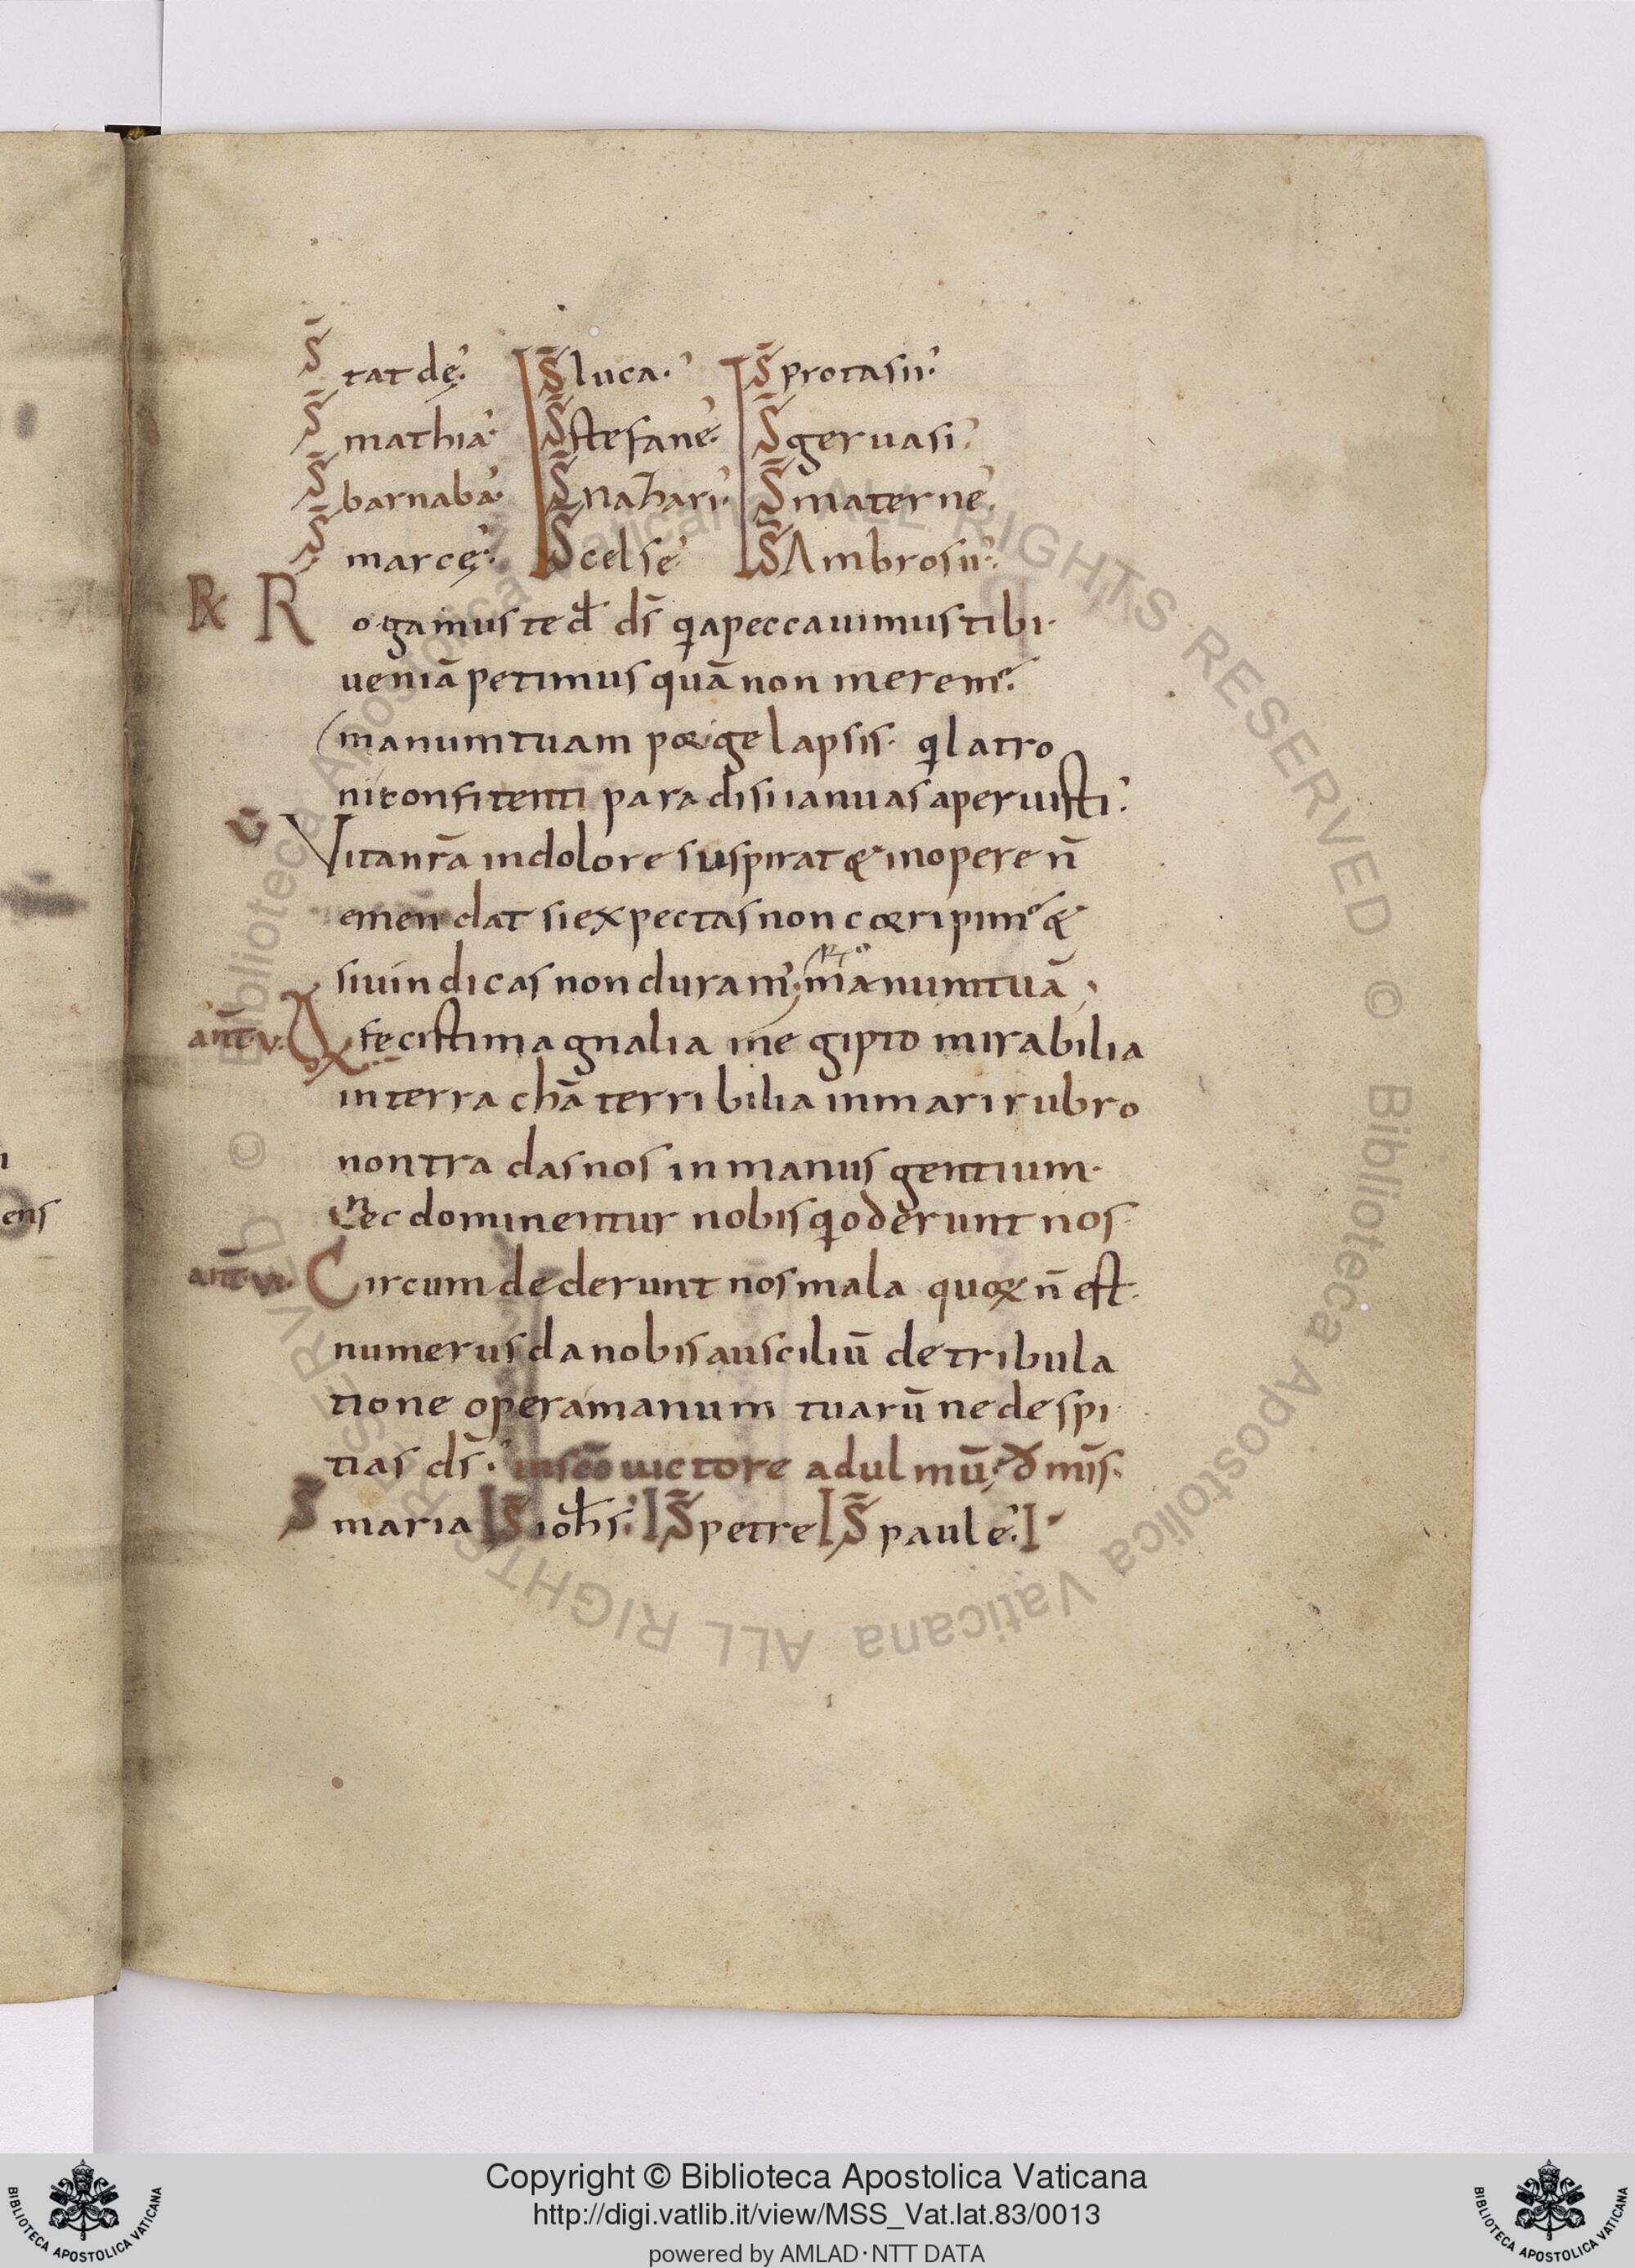 S̄ tatdę. S̄ luca. S̄ protasii.
S̄ mathia. S̄ stefane. S̄ gervasi.
S̄ barnaba. S̄ nazhari. S̄ materne.
S̄ marcę. S̄ celse. S̄ Ambrosii.
R℞ Rogamus te dē ds̄ qia peccauimus tibi.
ueniā petimus quā non meremꝰ.
manum tuam porrige lapsis. qi latro
ni confitenti paradisi ianuas aperuisti.
ꝟ Vita nr̄a in dolore suspirat & in opere n̄
emendat si expectas non corripimꝰ &
si uindicas non duramꝰ; manum tuā
ant̄ v. Qi fecisti magnalia in egipto mirabilia
in terra chā terribilia in mari rubro
non tradas nos in manus gentium.
nec dominentur nobis qi oderunt nos.
ant̄ vi. Circumdederunt nos mala quorum n̄ est.
numerus da nobis ausciliū de tribula
tione opera manum tuarū ne despi
tias ds̄. in scō uictore ad ulmū.
S̄ maria S̄ ioh̄s. S̄ petre S̄ paule.
ens
© Biblioteca Apostolica Vaticana ALL RIGHTS RESERVED © Biblioteca Apostolica Vaticana ALL RIGHTS RESERVED
Copyright © Biblioteca Apostolica Vaticana
http://digi.vatlib.it/view/MSS_Vat.lat.83/0013
powered by AMLAD·NTT DATA
BIBLIOTECA APOSTOLICA VATICANA
BIBLIOTECA APOSTOLICA VATICANA